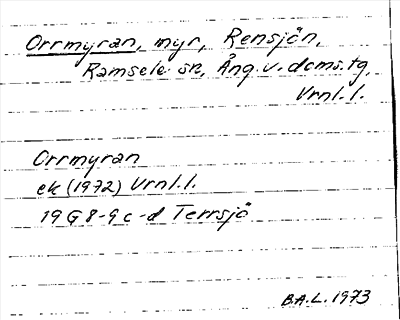 Orrmyran, myr, Rensjön,
Ramsele sn, Ång. v. dcms. tg,
Vrnl. l.
Orrmyran
ek (1972) Vrnl. l.
19 G 8-9 c-d Terrsjö
B.A.L. 1973